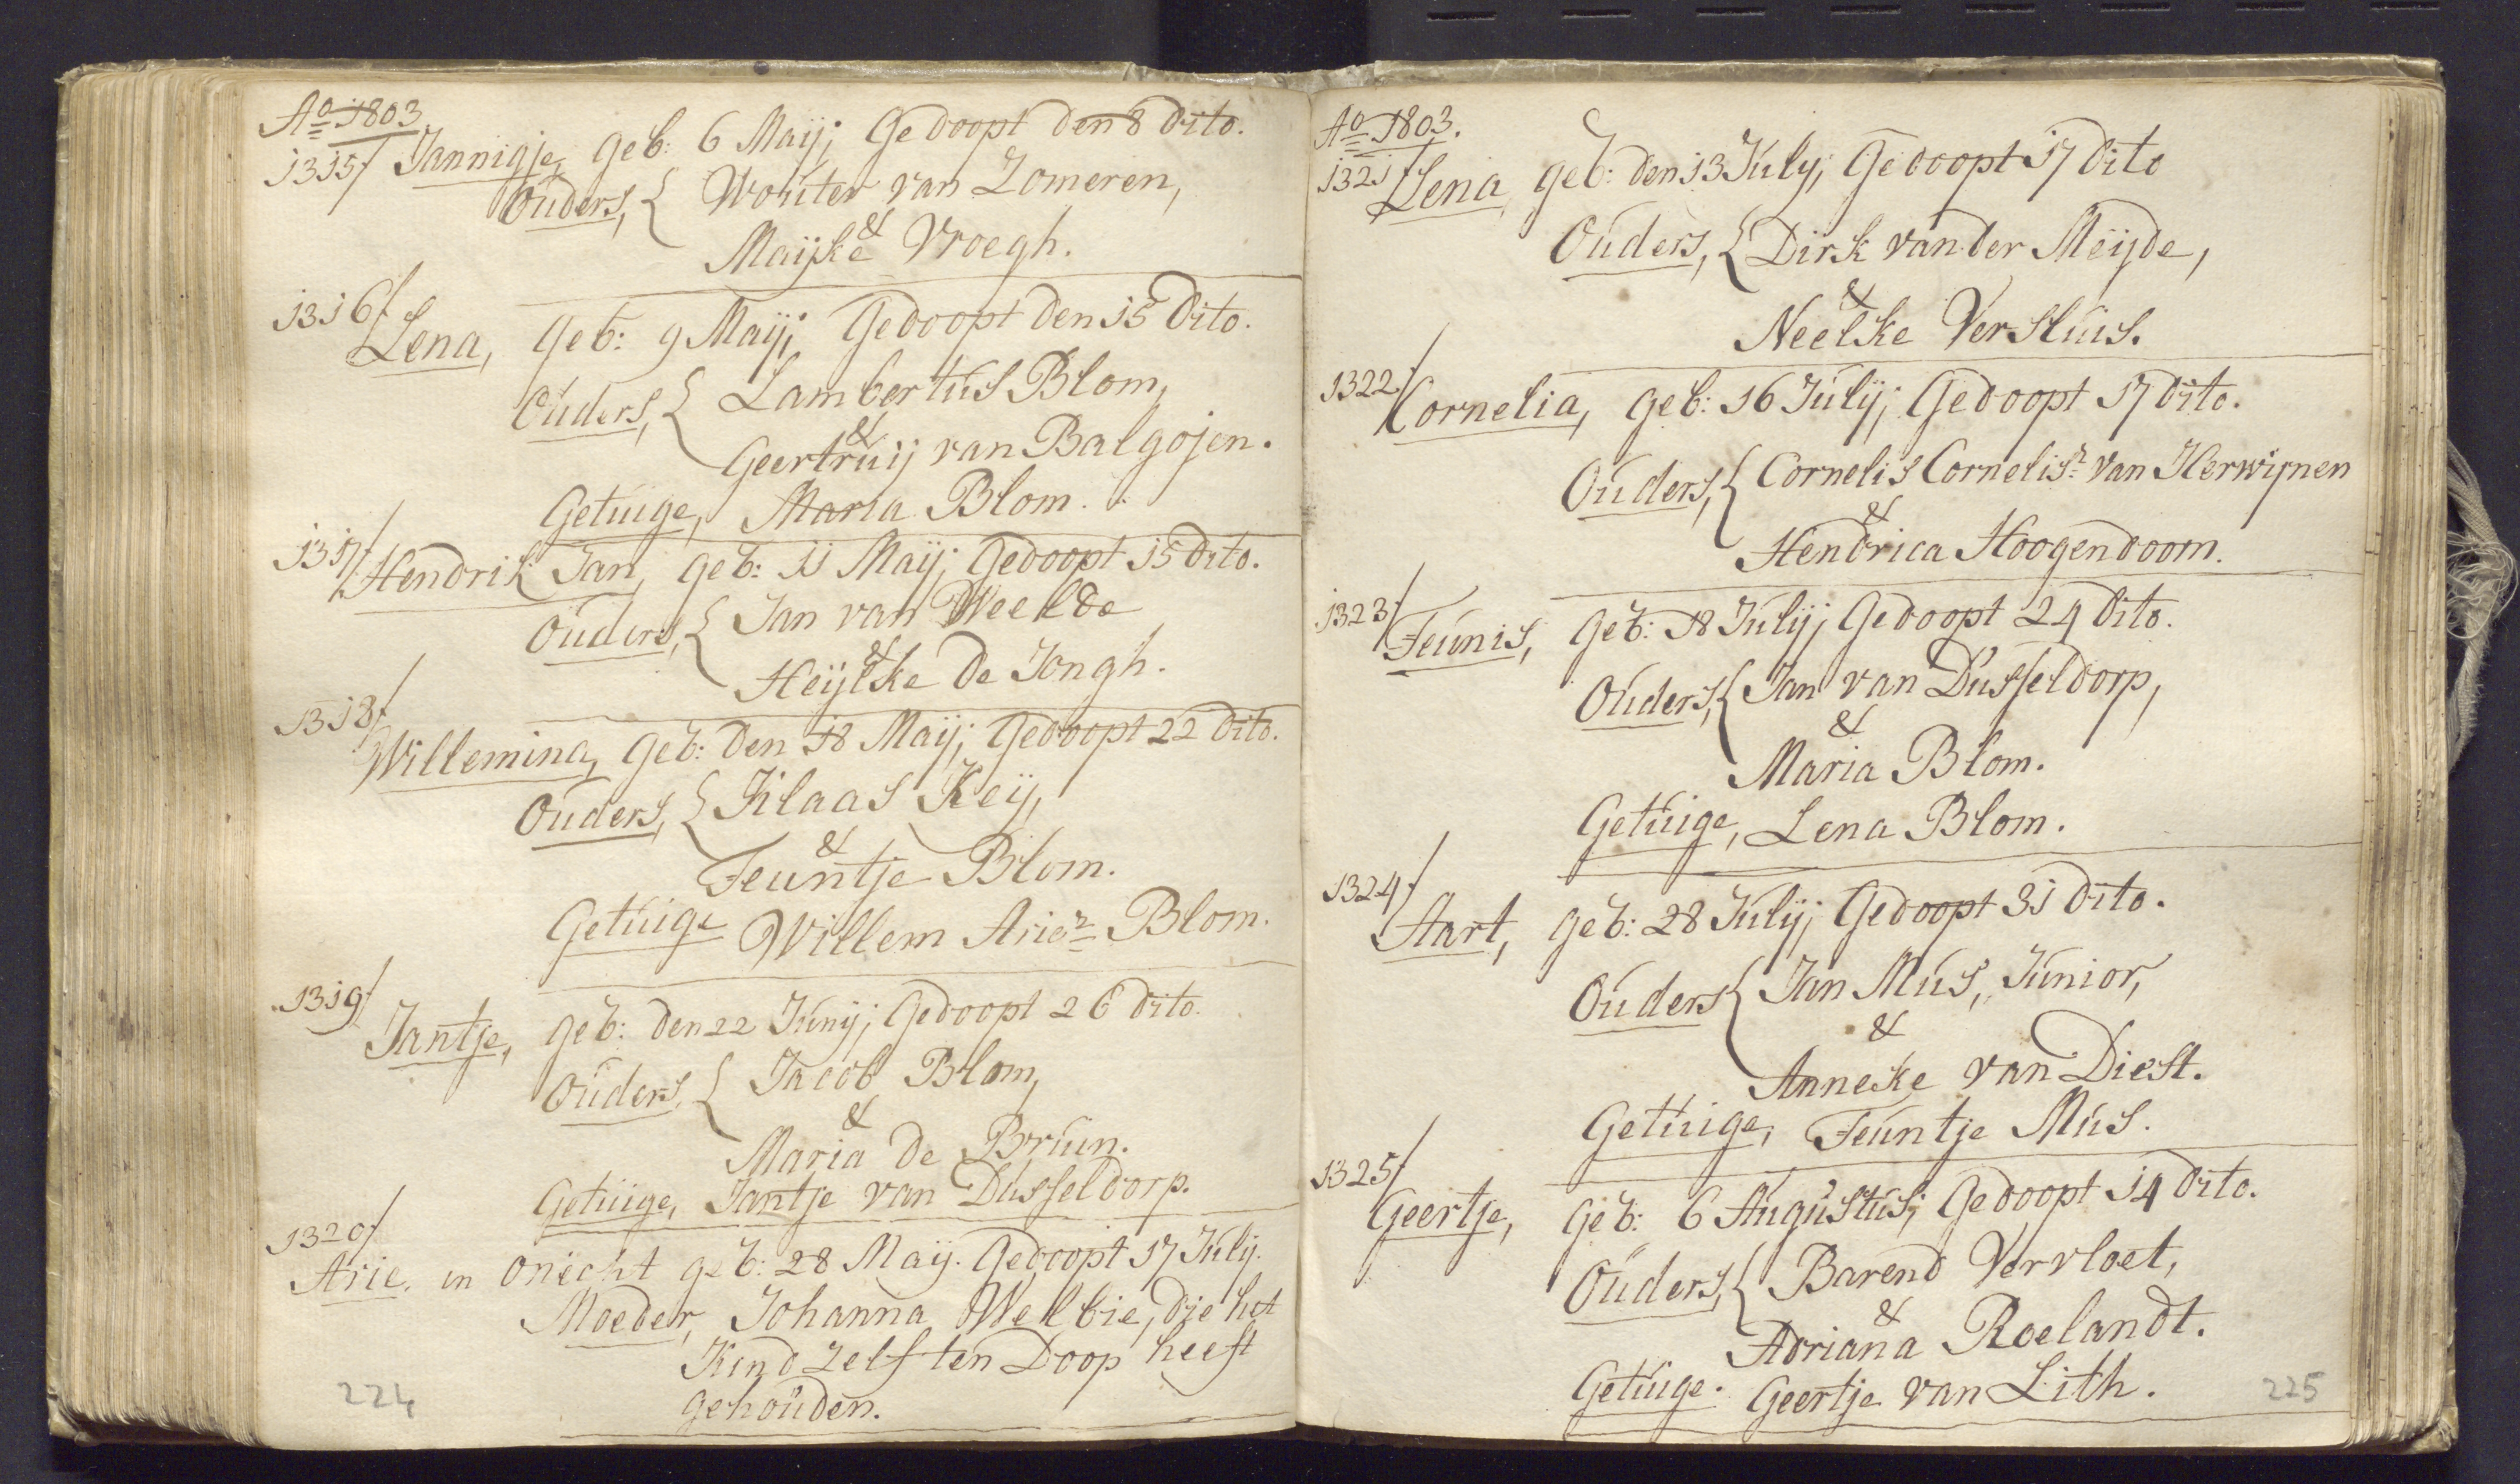 Ao 1803
1315/ Jannigje, geb: 6 Maij; Gedoopt den 8 Dito.
Ouders, { Wouter van Zomeren,
&
Maijke Vroegh.
1316/
Lena, geb: 9 Maij; Gedoopt den 15 Dito.
Ouders, { Lambertus Blom,
&
Geertruij van Balgojen.
Getuige, Maria Blom.
1317/
Hendrik Jan, geb: 11 Maij; Gedoopt 15 Dito.
Ouders, { Jan van Weelde
&
Heijltke De Jongh.
1318/
Willemina, geb: Den 18 Maij; Gedoopt 22 Dito.
Ouders, { Klaas Keij,
&
Teuntje Blom.
Getuige Willem Ariez Blom.
1319/
Jantje, geb: den 22 Junij; Gedoopt 26 Dito.
Ouders, { Jacob Blom,
&
Maria De Bruin.
Getuige, Jantje van Dusseldorp.
1320/
Arie. in onècht geb: 28 Maij. Gedoopt 17 Julij.
Moeder, Johanna Welbie, Die het
Kind zelf ten Doop heeft
gehouden.
224
Ao 1803.
1321/
Lena, geb: Den 13 July; Gedoopt 17 Dito
Ouders, { Dirk van der Meijde,
&
Neelke Versluis.
1322/
Cornelia, geb: 16 Julij; Gedoopt 17 Dito.
Ouders, { Cornelis Cornelisz van Herwijnen
&
Hendrica Hoogendoorn.
1323/
Teunis, geb: 18 Julij; Gedoopt 24 Dito.
Ouders, { Jan van Dusseldorp,
&
Maria Blom.
Getuige, Lena Blom.
1324/
Aart, geb: 28 Julij; Gedoopt 31 Dito.
Ouders { Jan Mus, Junior,
&
Anneke van Diest.
Getuige, Teuntje Mus.
1325/
Geertje, geb: 6 Augustus; Gedoopt 14 Dito.
Ouders, { Barend Vervloet,
&
Adriana Roelandt.
Getuige. Geertje van Lith.
225